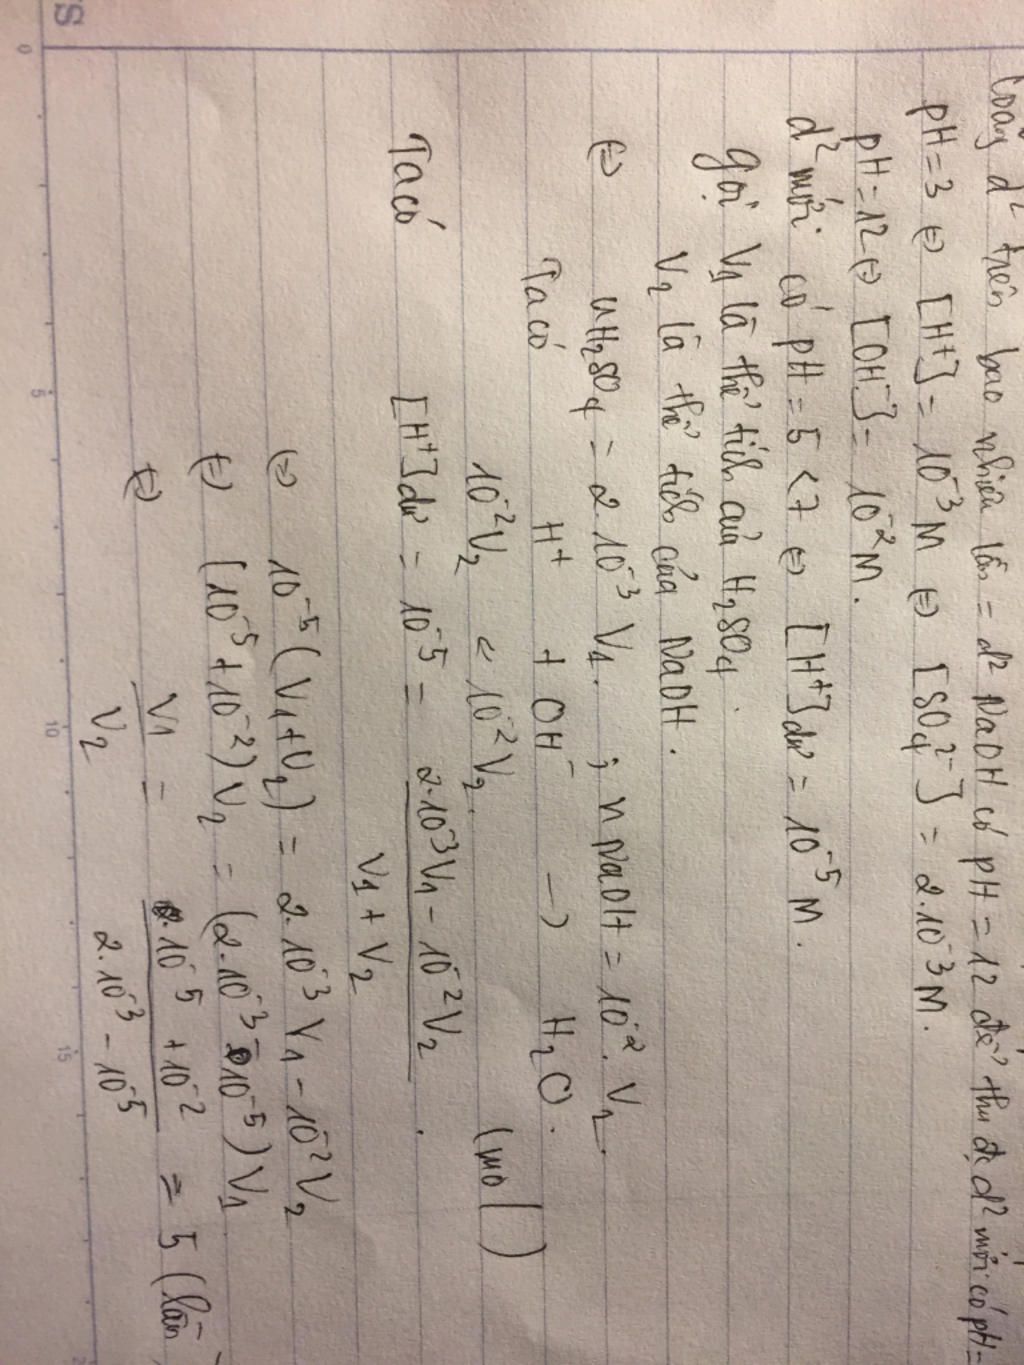 Loãng d² trên bao nhiêu lần = d² NaOH có pH = 12 để thu đc d² mới có pH =
pH = 3 ⇔ [H⁺] = 10⁻³ M ⇔ [SO₄²⁻] = 2.10⁻³ M.
pH = 12 ⇔ [OH⁻] = 10⁻² M.
d² mới có pH = 5 < 7 ⇔ [H⁺]dư = 10⁻⁵ M.
gọi V₁ là thể tích của H₂SO₄.
V₂ là thể tích của NaOH.
⇔ nH₂SO₄ = 2.10⁻³ V₁. ; nNaOH = 10⁻². V₂.
Ta có H⁺ + OH⁻ → H₂O.
10⁻²V₂ < 10⁻²V₂. (mol)
Ta có [H⁺]dư = 10⁻⁵ = (2.10⁻³V₁ - 10⁻²V₂) / (V₁ + V₂).
⇔ 10⁻⁵(V₁+V₂) = 2.10⁻³ V₁ - 10⁻²V₂
⇔ (10⁻⁵ + 10⁻²)V₂ = (2.10⁻³ - 10⁻⁵)V₁
⇔ V₁/V₂ = (10⁻⁵ + 10⁻²) / (2.10⁻³ - 10⁻⁵) = 5 (lần
0 5 10 15